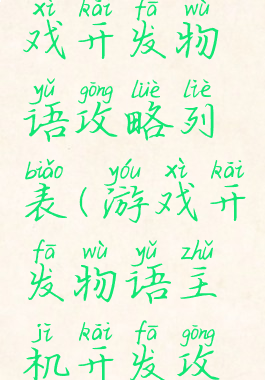 xì kāi fā wù
戏开发物
yǔ gōng lüè liè
语攻略列
biǎo yóu xì kāi
表(游戏开
fā wù yǔ zhǔ
发物语主
jī kāi fā gōng
机开发攻